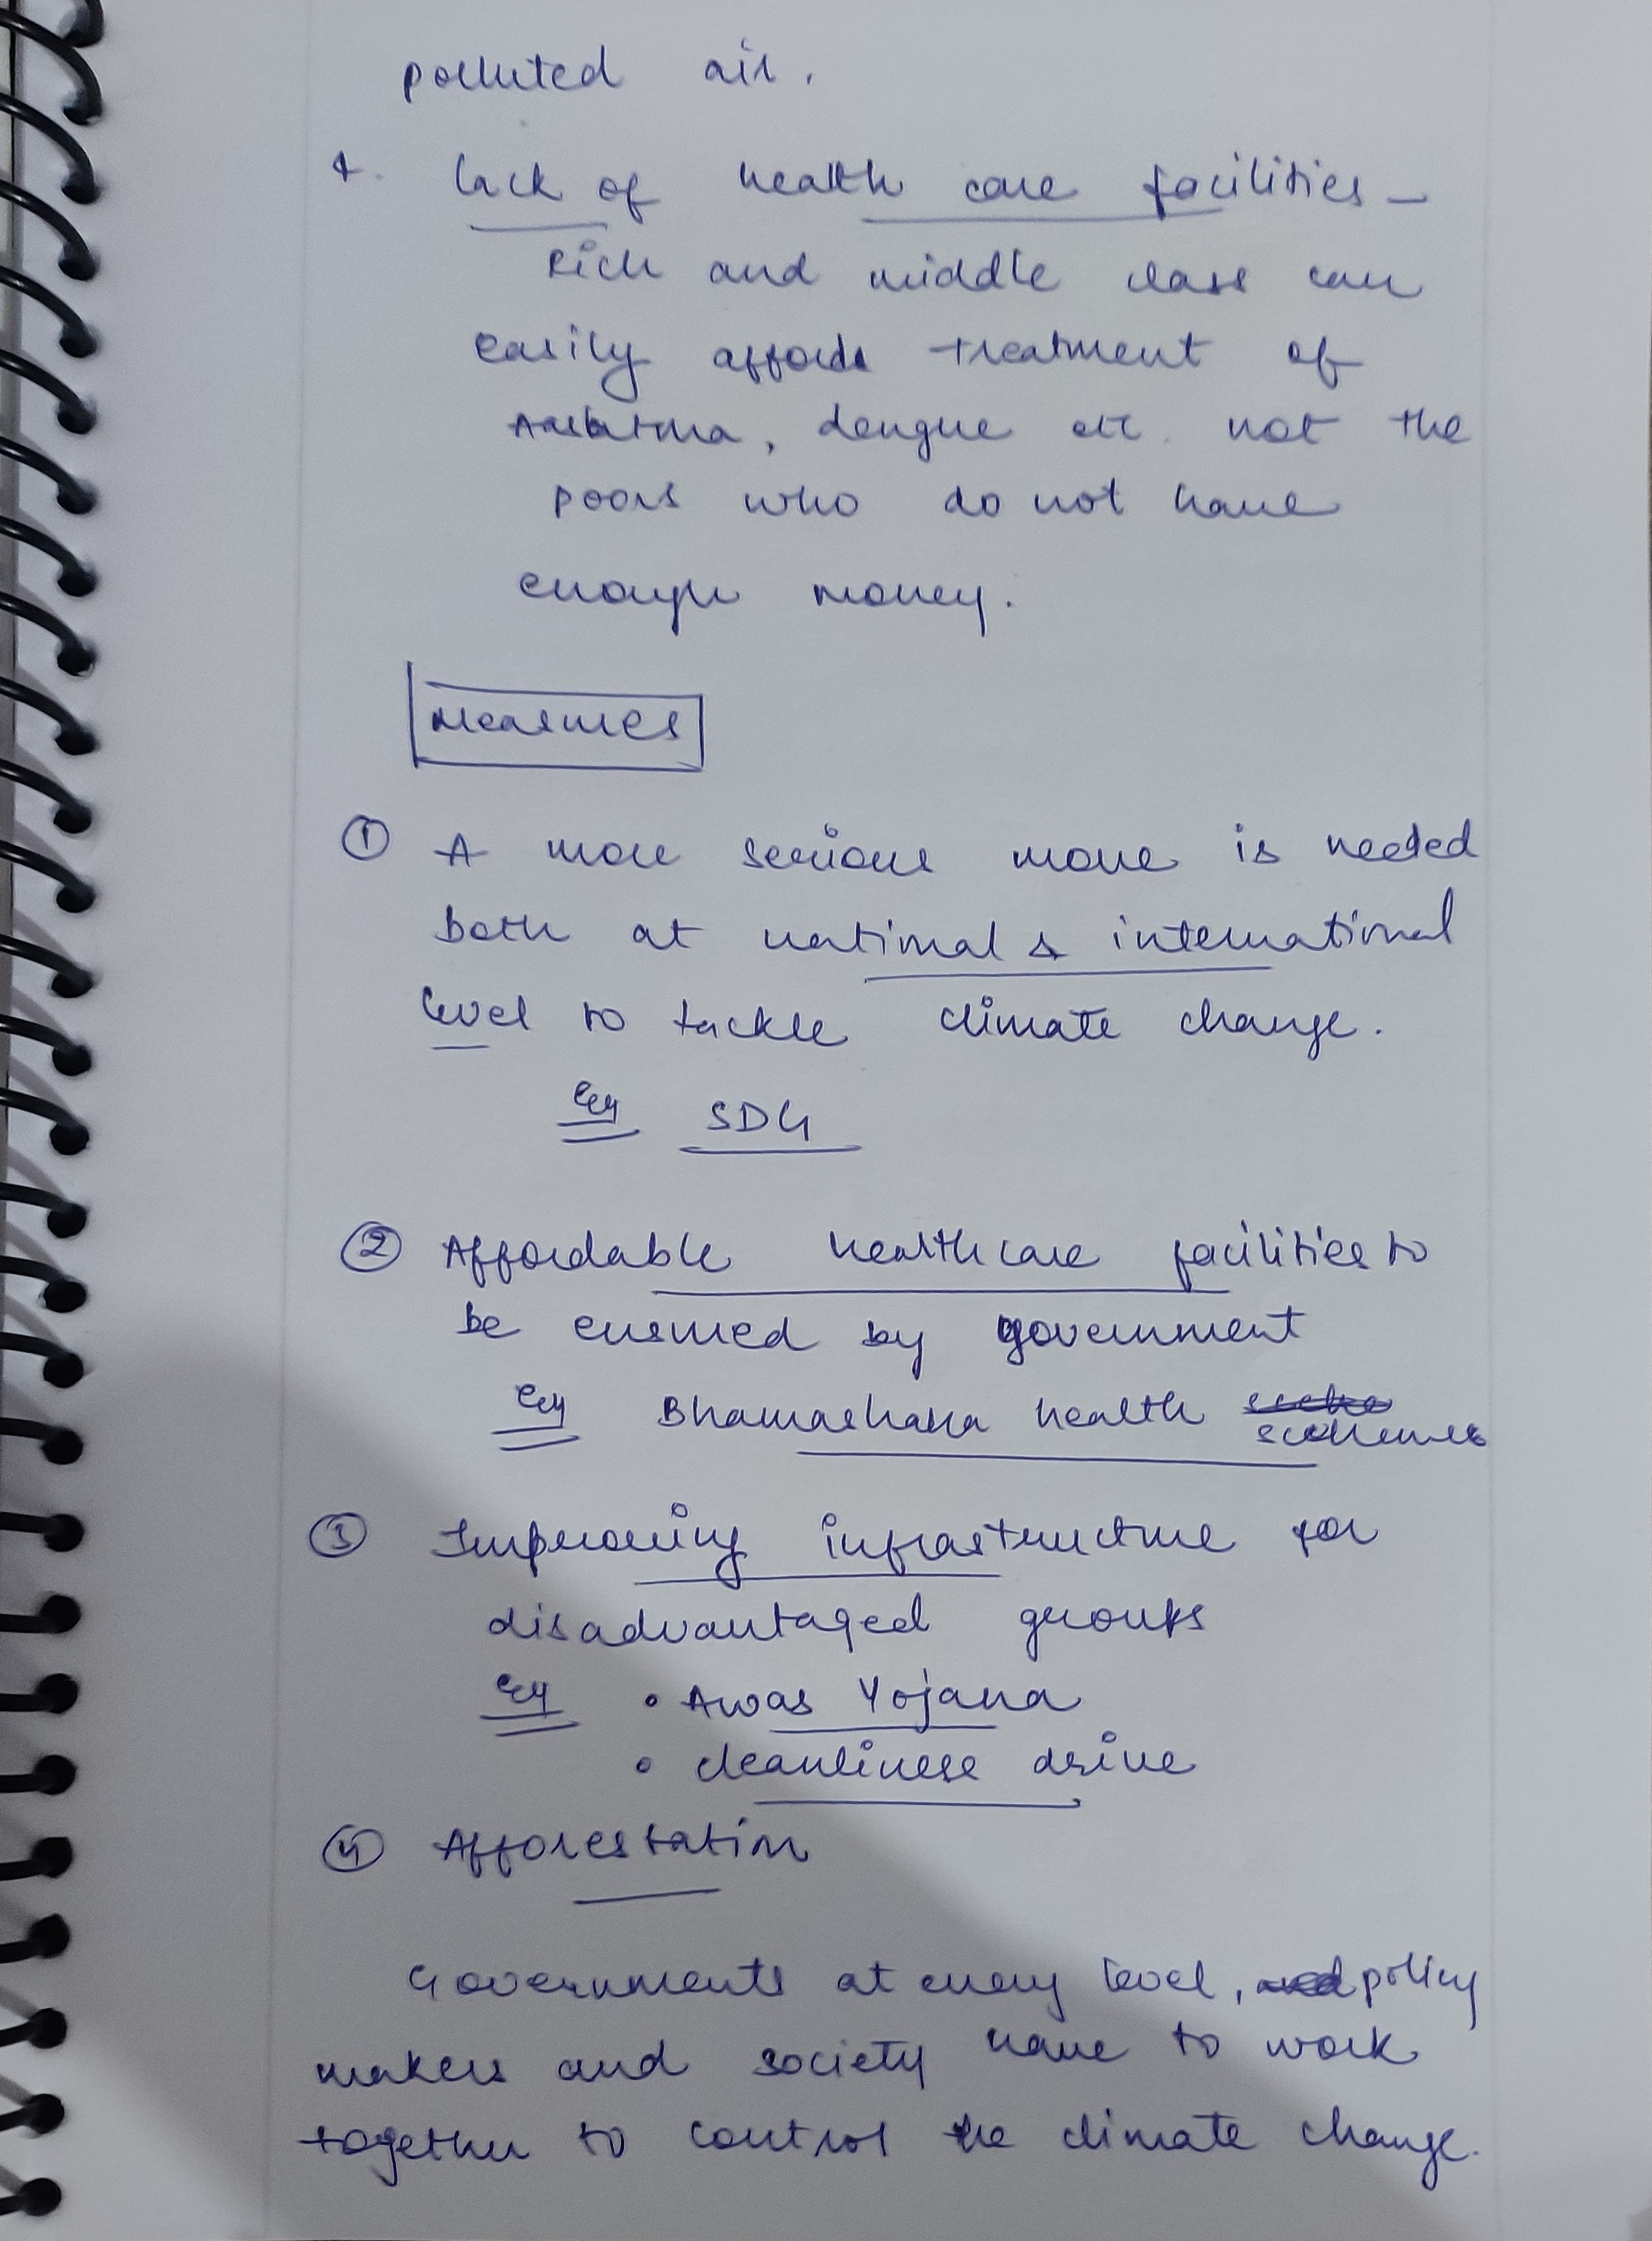 polluted air.
4. Lack of health care facilities -
Rich and middle class can
easily afford treatment of
Asthma, dengue etc. not the
poors who do not have
enough money.
Measures
① A more serious move is needed
both at national & international
level to tackle climate change.
Eg SDG
② Affordable healthcare facilities to
be ensured by government
Eg Bhamashaha health schemes
③ Improving infrastructure for
disadvantaged groups
Eg • Awas Yojana
• cleanliness drive
④ Afforestation
Governments at every level, policy
makers and society have to work
together to control the climate change.